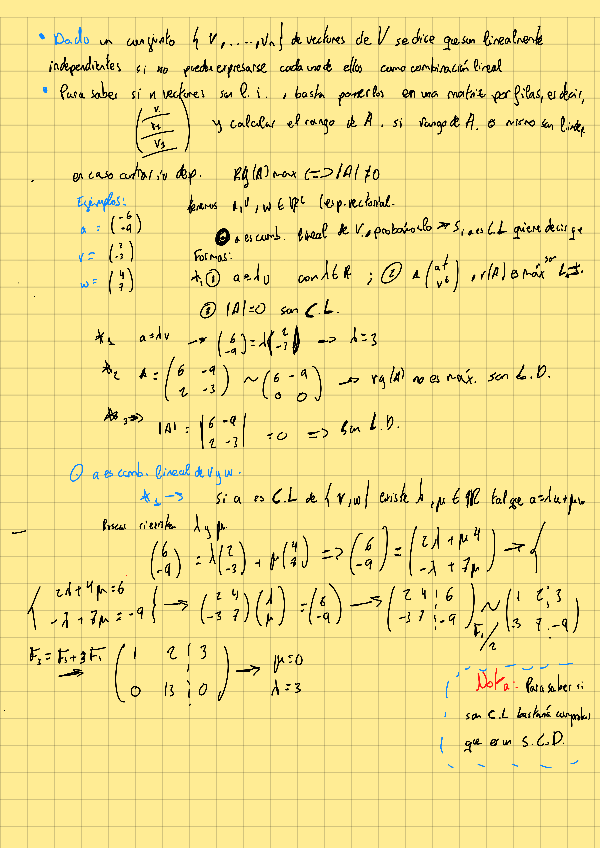 • Dado un conjunto { V, ..., Vn } de vectores de V se dice que son linealmente
independientes si no pueden expresarse cada uno de ellos como combinación lineal
• Para saber si n vectores son l. i., basta ponerlos en una matriz por filas, es decir,
(V1 / V2 / V3) y calcular el rango de A. si rango de A. o mismo son l.indep.
en caso contrario dep. Rg(A) max <=> |A| ≠ 0
Ejemplos:
a = (-6 / -9)
v = (2 / -3)
w = (4 / 7)
a es comb. lineal de V, probándolo => Si a es C.L quiere decir que
Formas:
*1 ① a=λv con λ∈R ; ② A (a^t / v^t), r(A) es máx son L.I.
③ |A|=0 son C.L.
*1 a=λv -> (6 / -9) = λ(2 / -3) -> λ=3
*2 A = (6 -9 / 2 -3) ~ (6 -9 / 0 0) -> rg(A) no es máx. son L.D.
*3 => |A| = |6 -9 / 2 -3| = 0 => Son L.D.
a es comb. lineal de v y w.
*1 -> Si a es C.L de { v, w } existe λ, μ ∈ R tal que a=λu+μw
Buscar si existen λ y μ
(6 / -9) = λ(2 / -3) + μ(4 / 7) => (6 / -9) = (2λ + μ4 / -λ + 7μ) -> {
{ 2λ+4μ=6 / -λ+7μ=-9 } -> (2 4 / -3 7)(λ / μ) = (6 / -9) -> (2 4 | 6 / -3 7 | -9) ~ F1/2 (1 2 3 / 3 7 -9)
F2 = F2+3F1 -> (1 2 | 3 / 0 13 | 0) -> μ=0
λ=3
Nota: Para saber si
son C.L bastaría comprobar
que es un S.C.D.